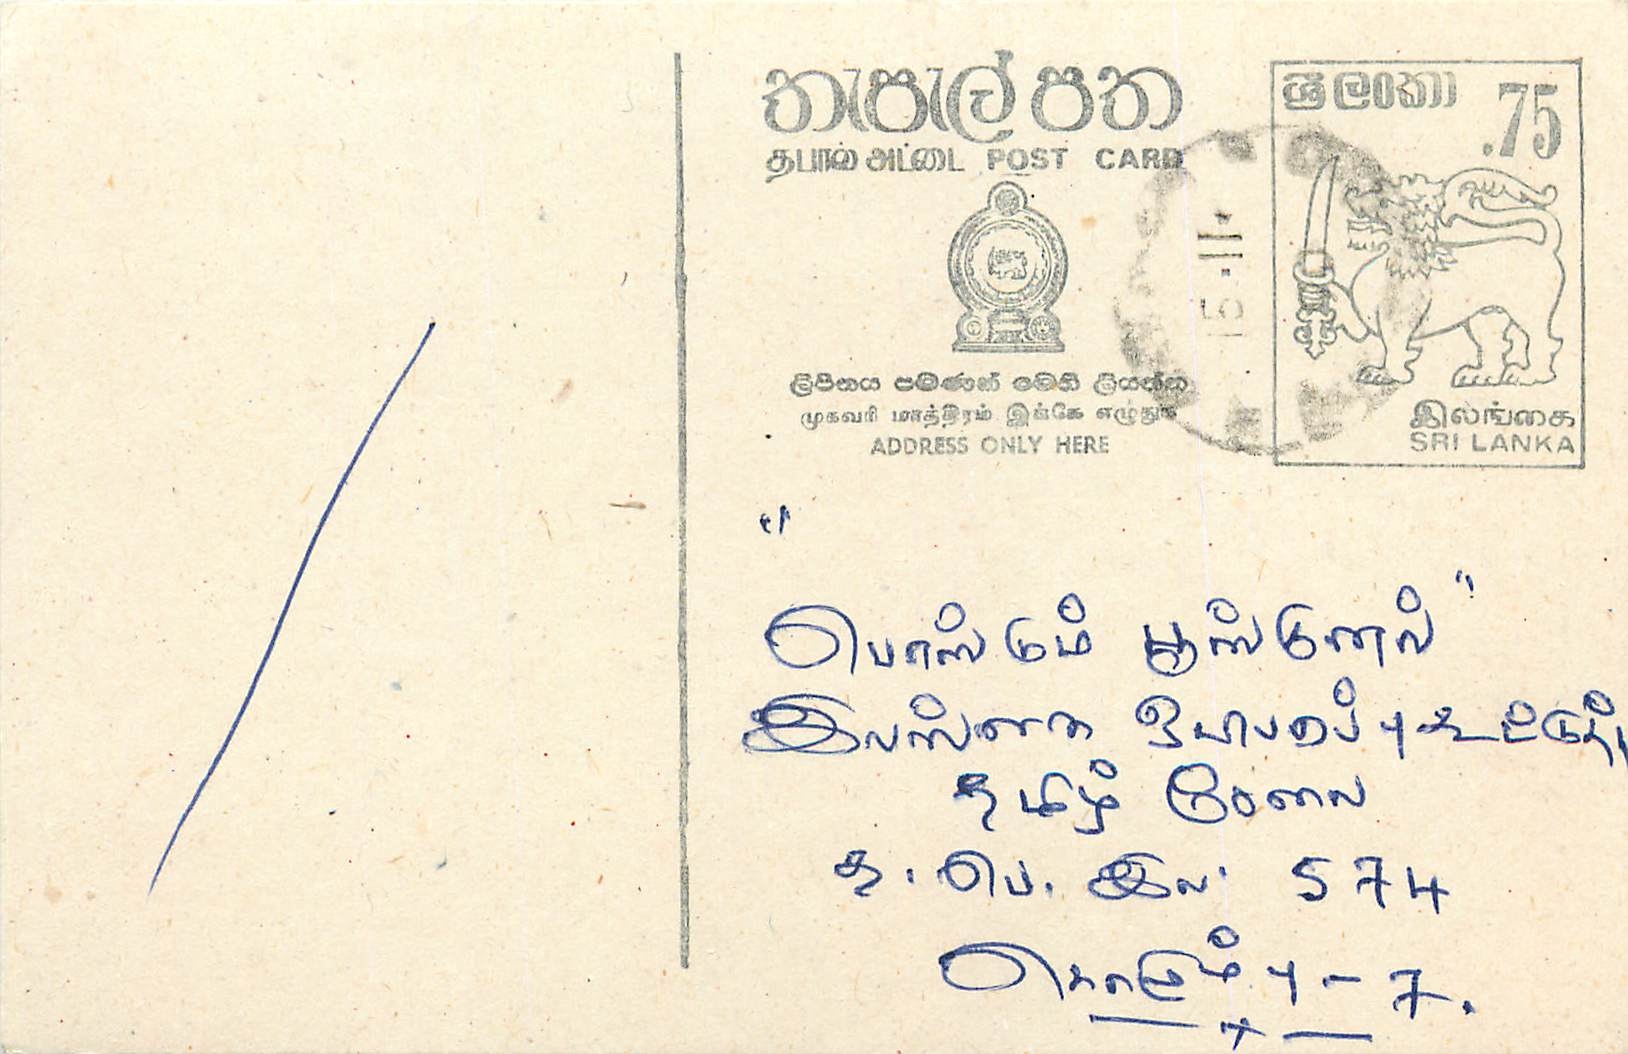 තැපැල් පත
ශ්‍රී ලංකා .75
தபால் அட்டை POST CARD
15 .11.
ලිපිනය පමණක් මෙහි ලියන්න
முகவரி மாத்திரம் இங்கே எழுதுக
ADDRESS ONLY HERE
இலங்கை
SRI LANKA
"
பொங்கும் பூங்குனல்"
இலங்கை ஒலிபரப்புக்
தமிழ் சேவை
த. பெ. இல. 574
கொழும்பு - 7.